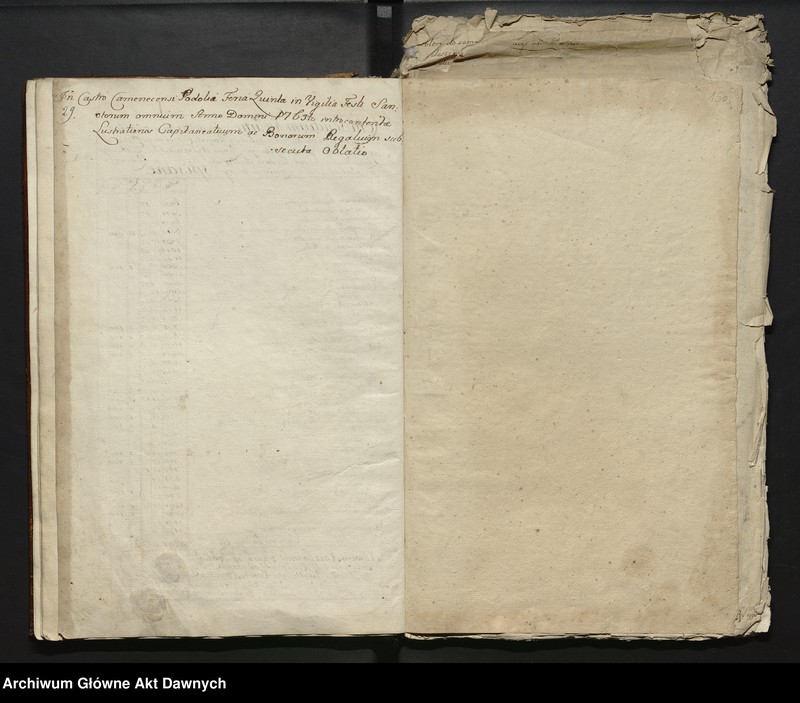 In Castro Camenecensi Podoliæ Feria Quinta in Vigilia Festi San
29. ctorum omnium Anno Domini introcontentæ
Lustrationis Capitaneatuum ac Bonorum Regalium sub
secuta Oblatio
Archiwum Główne Akt Dawnych